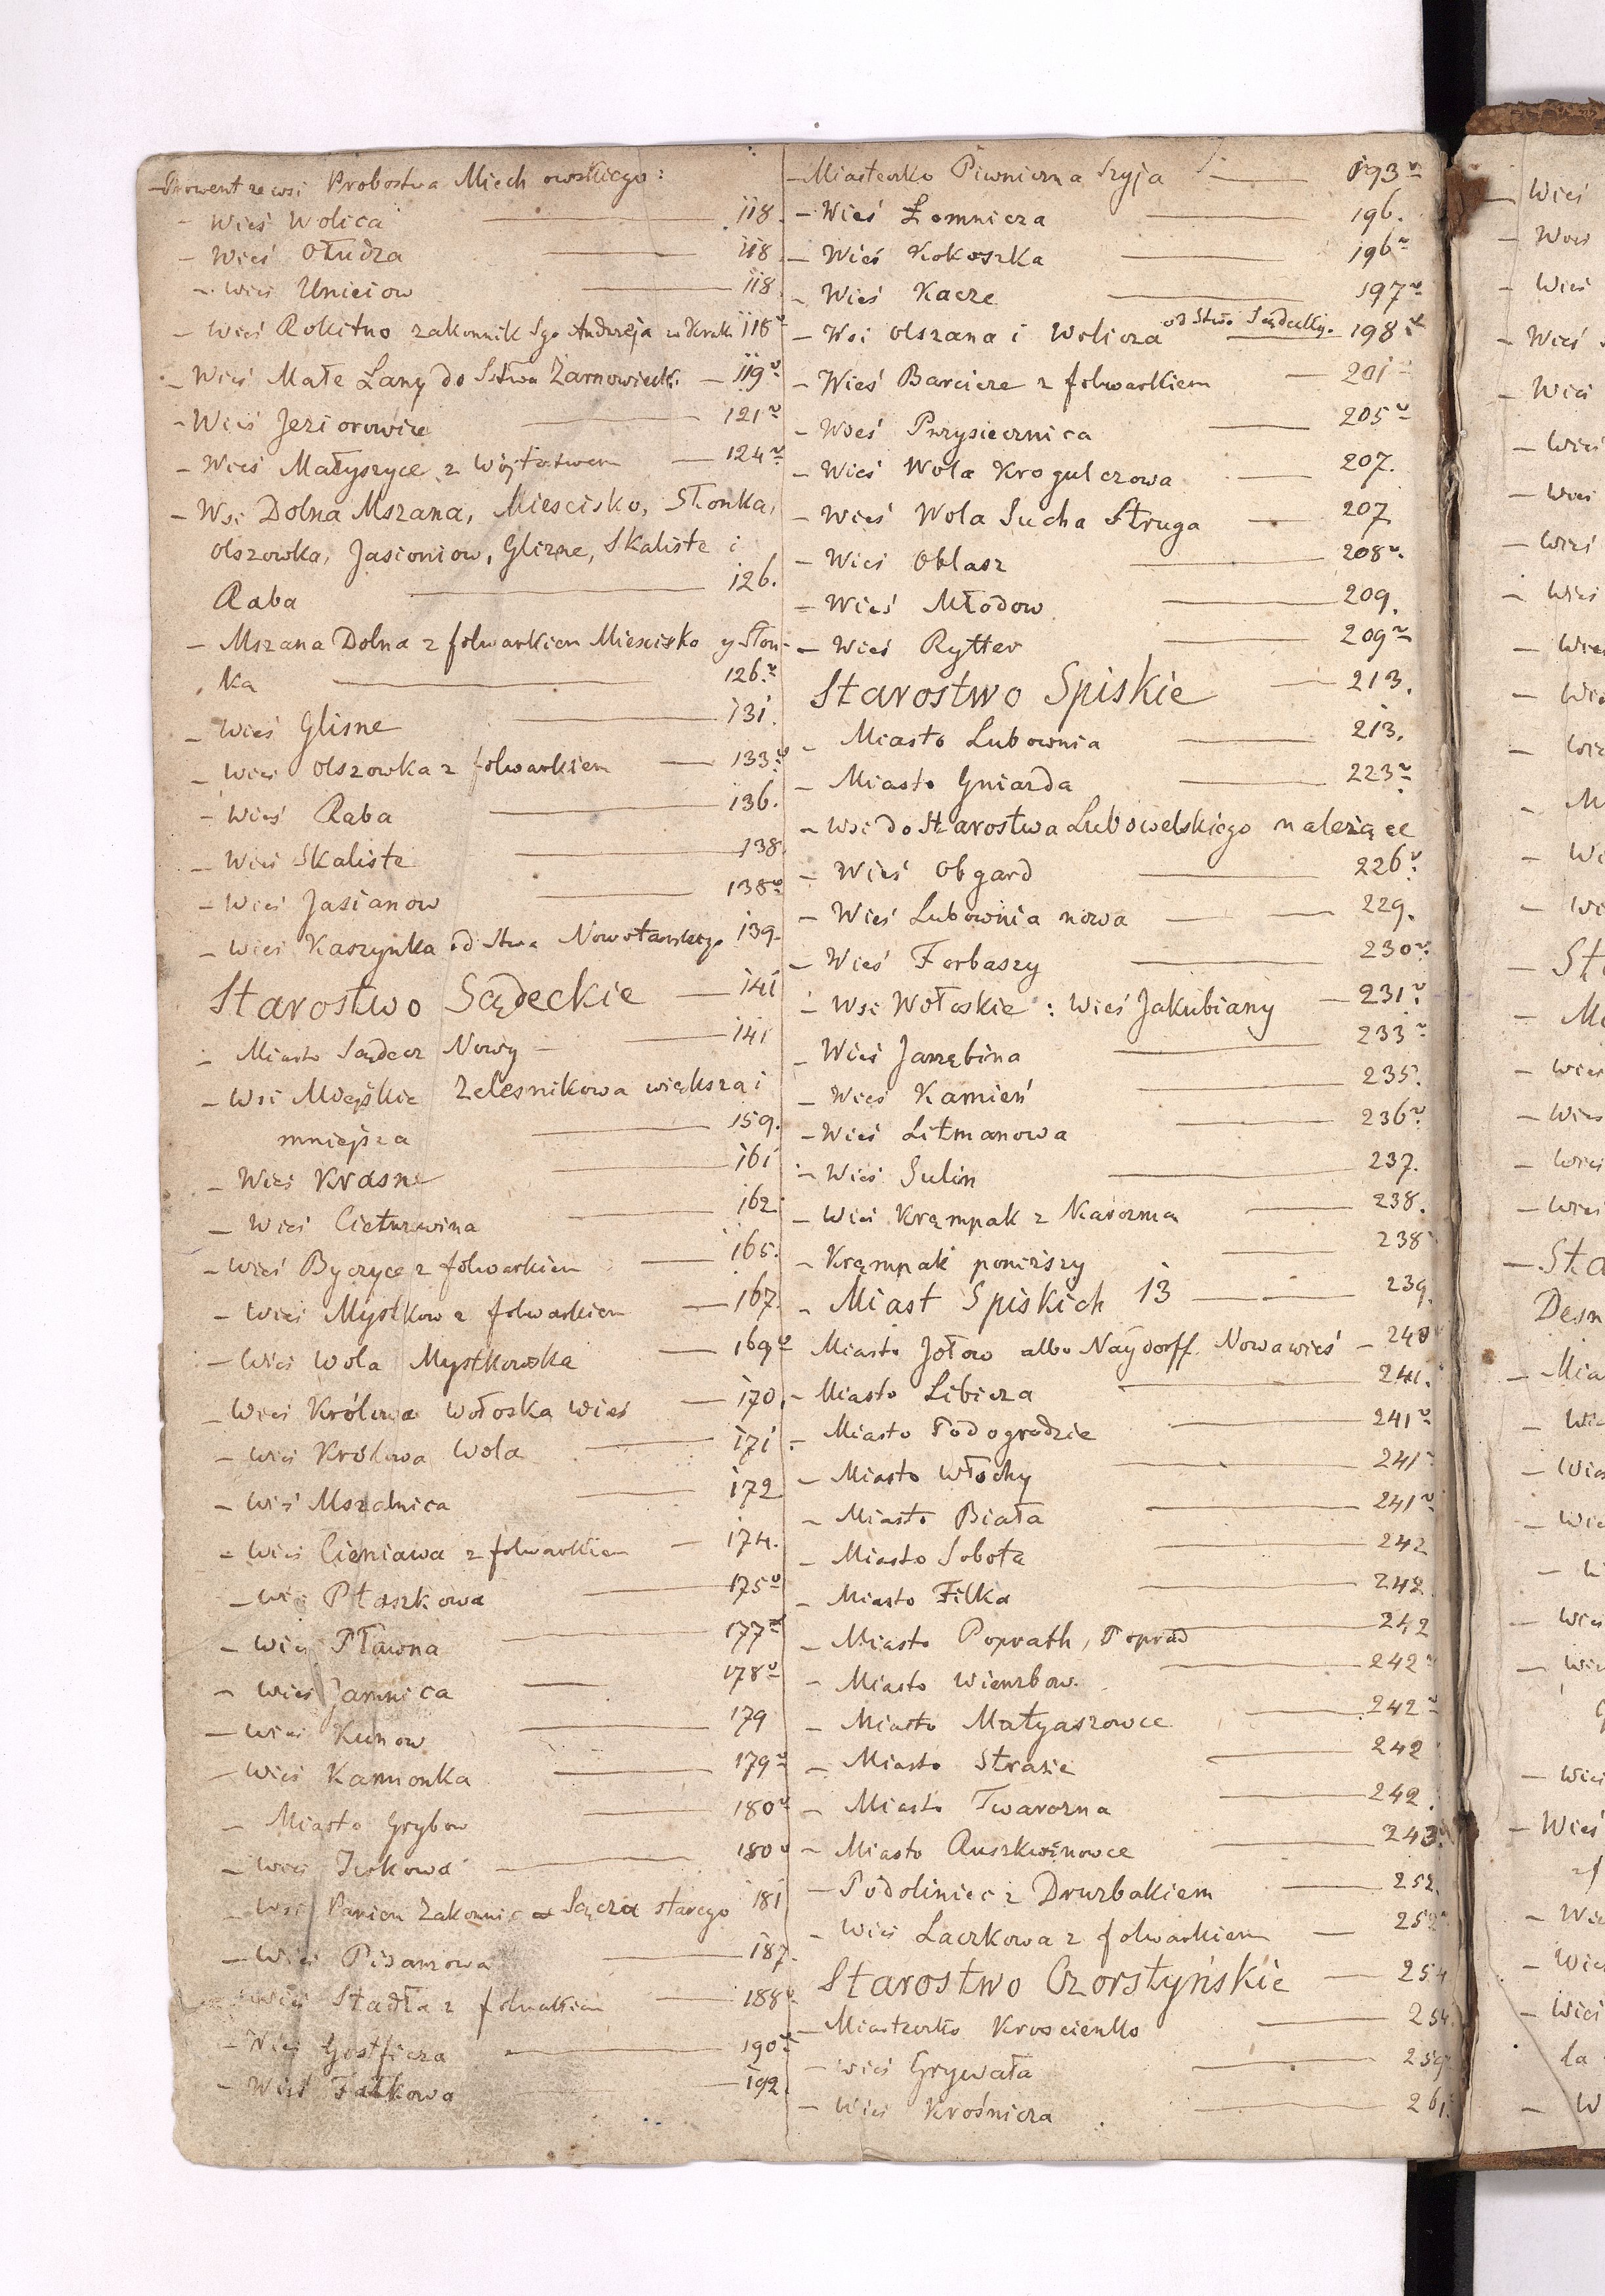 – Prowent ze wsi Probostwa Miechowskiego:
– Wieś Wolica — 118.
– Wieś Otudza — 118
– Wieś Unieiow — 118
– Wieś Rokitno zakonnik Sgo Andrzeja w Krak 118v
– Wieś Małe Lany do Sstwa Żarnowieck. — 119v
– Wieś Jeziorowice — 121v
– Wieś Małyszyce z Wójtostwem — 124v
– Wsi Dolna Mszana, Miescisko, Słonka,
Olszowka, Jasioniow, Glizne, Skaliste i
Raba — 126.
– Mszana Dolna z folwarkiem Miescisko y Słon-
ka — 126.v
– Wieś Glisne — 131.
– Wieś Olszowka z folwarkiem — 133v
– Wieś Raba — 136.
– Wieś Skaliste — 138
– Wieś Jasianow — 138v
– Wieś Kaszynka od Stwa Nowotarskiego 139.
Starostwo Sądeckie — 141
– Miasto Sądecz Nowy — 141
– Wsi Mieyskie Zelesnikowa większa i
mnieysza — 159.
– Wieś Krasne — 161
– Wieś Cieturwina — 162
– Wieś Byczyce z folwarkiem — 165.
– Wieś Mystkow z folwarkiem — 167.
– Wieś Wola Mystkowska — 169v
– Wieś Królowa Wołoska Wieś — 170.
– Wieś Królowa Wola — 171
– Wieś Mszalnica — 172
– Wieś Cieniawa z folwarkiem — 174.
– Wieś Ptaszkowa — 175v
– Wieś Pławna — 177v
– Wieś Jamnica — 178v
– Wieś Kunow — 179
– Wieś Kamionka — 179v
– Miasto Grybow — 180v
– Wieś Jurkowa — 180v
– Wsi Panien Zakonnic z Sącza starego 181
– Wieś Pisarzowa — 187.
– Wieś Stadła z folwarkiem — 188v
– Wieś Gostficza — 190v
– Wieś Fałkowa — 192.
– Miasteczko Piwniczna Szyja — 193v
– Wieś Łomnicza — 196.
– Wieś Kokoszka — 196v
– Wieś Kacze — 197v
– Wsi Olszana i Wolicza od Stwa Sądeckig. — 198v
– Wieś Barcicze z folwarkiem — 201
– Wieś Przysiecznica — 205v
– Wieś Wola Krogulczowa — 207.
– Wieś Wola Sucha Struga — 207
– Wieś Oblasz — 208v.
– Wieś Młodow — 209.
– Wieś Rytter — 209v
Starostwo Spiskie — 213.
– Miasto Lubownia — 213.
– Miasto Gniazda — 223v
– Wsi do Starostwa Lubowelskiego należące
– Wieś Obgard — 226v
– Wieś Lubownia nowa — 229.
– Wieś Forbaszy — 230v
– Wsi Wołoskie: Wieś Jakubiany — 231v
– Wieś Jarzębina — 233v
– Wieś Kamień — 235.
– Wieś Litmanowa — 236v
– Wieś Sulin — 237.
– Wieś Krąmpak z Karczmą — 238.
– Krąmpak ponizszy — 238
– Miast Spiskich 13 — 239.
Miasto Jołow albo Naydorff. Nowawieś – 240
– Miasto Libicza — 241.
– Miasto Podogrodzie — 241v
– Miasto Włochy — 241v
– Miasto Biała — 241v
– Miasto Sobota — 242
– Miasto Filka — 242
– Miasto Poprath, Poprad — 242
– Miasto Wierzbow. — 242v
– Miasto Matyaszowce — 242v
– Miasto Straże — 242
– Miasto Twarozna — 242.
– Miasto Ruszkwinowce — 243
– Podoliniec z Druzbakiem — 252.
– Wieś Laczkowa z folwarkiem — 252
Starostwo Czorstyńskie — 254
– Miasteczko Kroscienko — 254.
– Wieś Grywała — 259
– Wieś Krośnicza — 261.